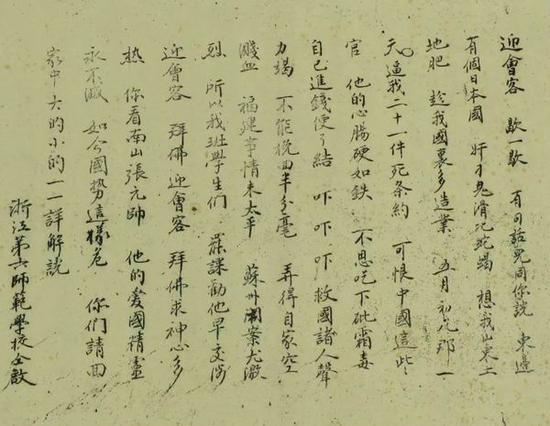 迎會客 歇一歇 有句話兒同你説 東邊
有個日本國 奸刁鬼滑比蛇蝎 想我山東土
地肥 趁我國裏多造業 五月初九那一
天 逼我二十一件死条約 可恨中國這些
官 他的心腸硬如鉄 不思吃下砒霜毒
自己進錢便了結 吓 吓 吓 救國諸人聲
力竭 不能挽囬半分毫 弄得自家空
濺血 福建事情未太平 蘇州案尤激
烈 所以我班學生們 罷課勸他早交涉
迎會客 拜佛 迎會客 拜佛求神心多
热 你看南山張元帥 他的爱國精靈
永不滅 如今國勢這樣危 你們請回
家中大的小的一一詳解説
浙江第六師範學校仝啟